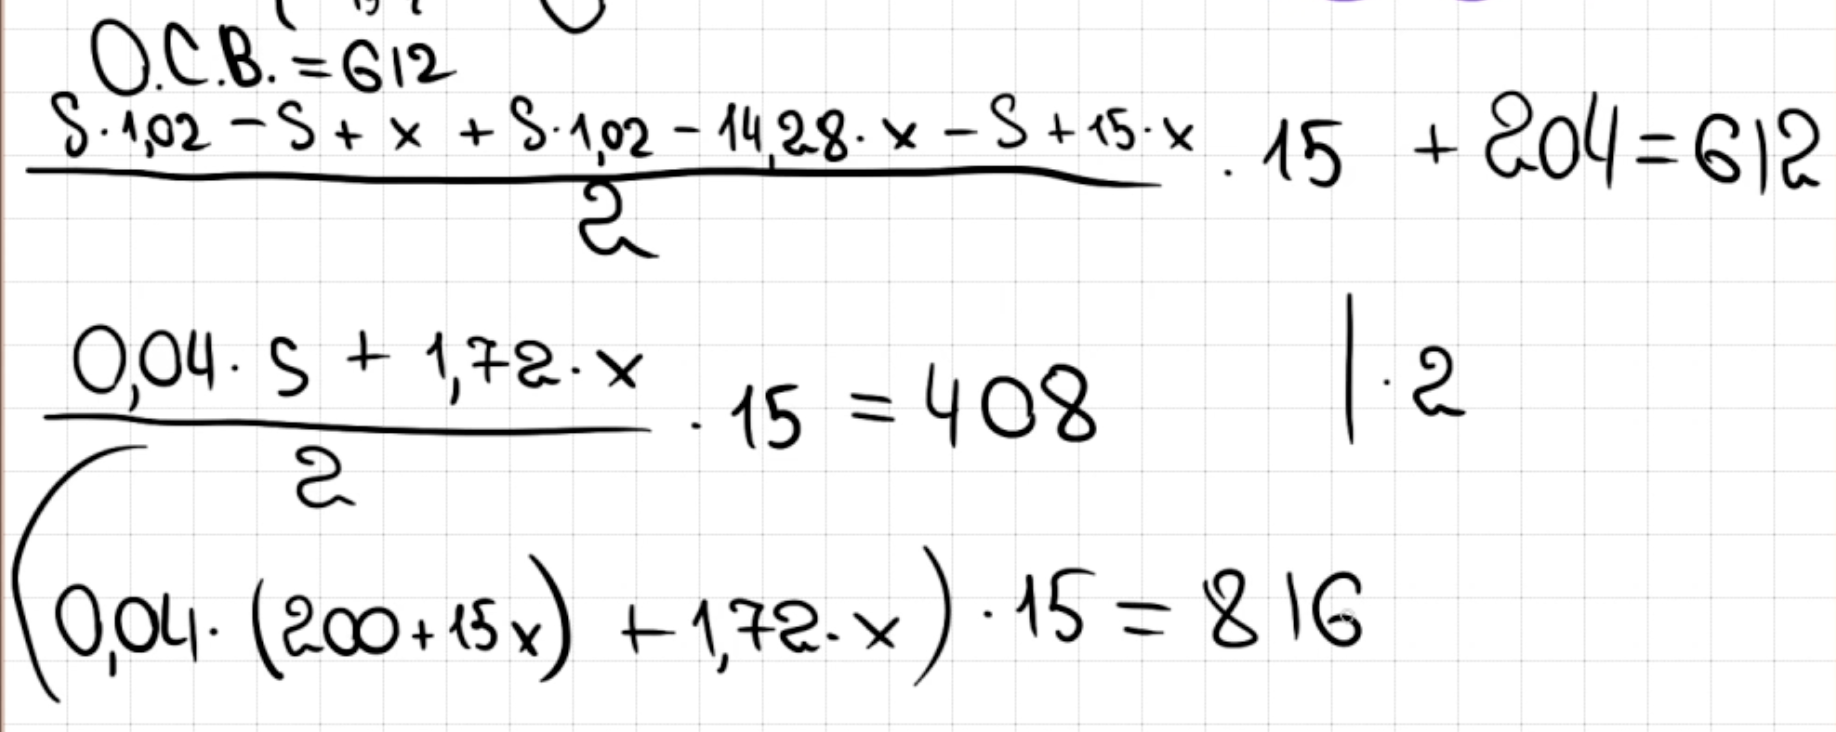 О.С.В. = 612
(S·1,02 - S + x + S·1,02 - 14,28·x - S + 15·x)/2 · 15 + 204 = 612
(0,04·S + 1,72·x)/2 · 15 = 408 |·2
(0,04·(200+15x) + 1,72·x)·15 = 816